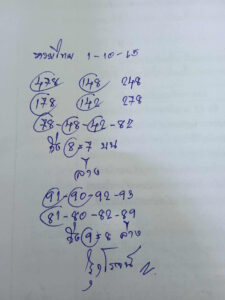 หวยไทย 1-10-65
478 148 248
178 142 278
78-48-42-82
วิ่ง 8=7 บน
ล่าง
91-90-92-93
81-80-82-89
วิ่ง 9=8 ล่าง